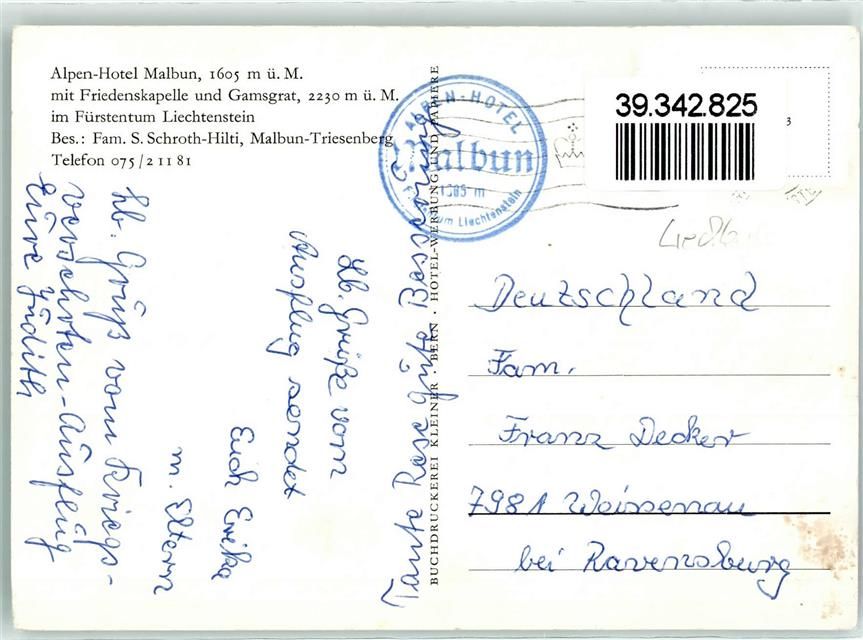 Alpen-Hotel Malbun, 1605 m ü. M.
mit Friedenskapelle und Gamsgrat, 2230 m ü. M.
im Fürstentum Liechtenstein
Bes.: Fam. S. Schroth-Hilti, Malbun-Triesenberg
Telefon 075/2 11 81
ALPEN-HOTEL
Malbun
1605 m
Fürstentum Liechtenstein
39.342.825
3
Deutschland
Fam.
Franz Decker
7981 Weissenau
bei Ravensburg
BUCHDRUCKEREI KLEINER · BERN · HOTEL-WERBUNG UND PAPIERE
Tante Rose gute Besserung
Lb. Grüße vom
Ausflug sendet
Euch Erika
m. Eltern
Lb. Grüß vom Kriegs-
versehrten-Ausflug
Eure Judith